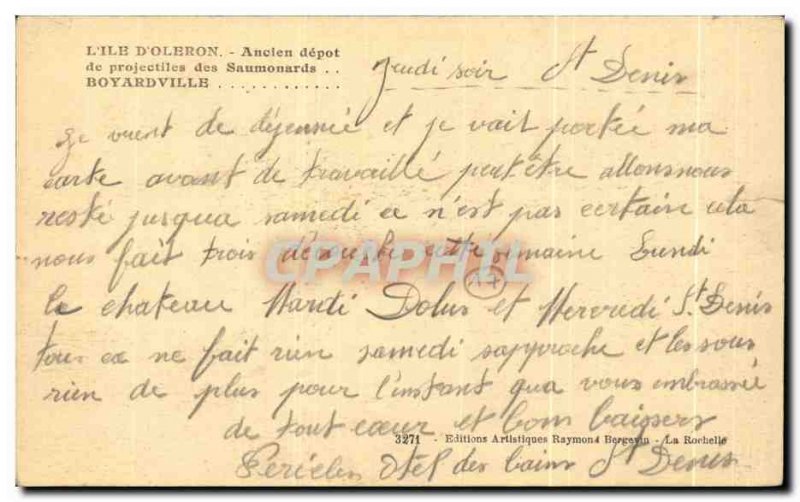 L'ILE D'OLERON. - Ancien dépot
de projectiles des Saumonards . .
BOYARDVILLE . . . . . . . . . . . .
Jeudi soir St Denis
je vient de déjeunné et je vait porté ma
carte avant de travaillé peut être allons nous
resté jusqua samedi ce n'est pas certain cela
nous fait trois cette semaine Lundi
le chateau Mardi Dolus et Mercredi St. Denis
tous ce ne fait rien samedi sapproche et les sous
rien de plus pour l'instant qua vous embrassé
de tout cœur et bons baisers
3271 - Editions Artistiques Raymond Bergevin - La Rochelle
Otel des bains St Denis
CPAPHIL